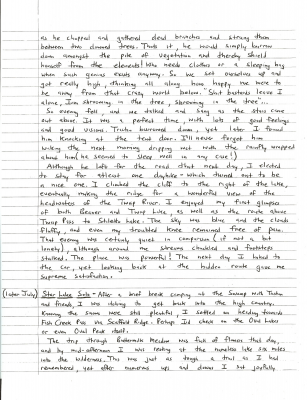 as he chopped and gathered dead branches and strung them
between two downed trees. That's it, he would simply burrow
down amongst the pile of vegetation and thereby shield
himself from the elements! Who needs clothes or a sleeping bag
when such genius exists anyway. So we set ourselves up and
got really high, thinking all along how happy we were to
be away from that crazy world below. Shit bastards leave I
alone, I'm skrewing in the tree, skrewing in the tree...
So evening fell, and we talked and sang as the stars came
out above. It was a perfect time, with lots of good feelings
and good visions. Truth burrowed down, yet later I found
him knocking at the tent door. I'll never forget him
waking the next morning dripping wet with the rainfly wrapped
above him, he seemed to sleep well in any case!
Although he left for the road that next day, I elected
to stay for atleast one dayhike - which turned out to be
a nice one. I climbed the cliff to the right of the lake,
eventually making a ridge for a wonderful view of the
headwaters of the Twap River. I enjoyed my first glimpses
of both Beaver and Twap Lake, as well as the route above
Twap Pass to Stiletto Lake. The sky was blue and the clouds
fluffy, and even my troubled knee remained free of pain.
That evening was certainly quiet in comparison (if not a bit
lonely), although around me streams chuckled and treetops
stalked. The place was powerful! The next day I hiked to
the car, yet looking back at the hidden route gave me
Supreme Satisfaction.
(later July) Star Lakes Solo - After a brief break camping at the Swamp with Truths
and friends, I was itching to get back into the high country.
Knowing the snows were still plentiful, I settled on heading towards
Fish Creek Pass via Scatter Ridge. Perhaps I'd check on the Owl Lakes
or even Oval Peak itself.
The trip through Buttermilk Meadow was fuck of flowers that day,
and by mid-afternoon I was resting at the nameless lake 2.5 miles
into the wilderness. This was just as tough a trail as I had
remembered, yet after numerous ups and downs I hit joyfully